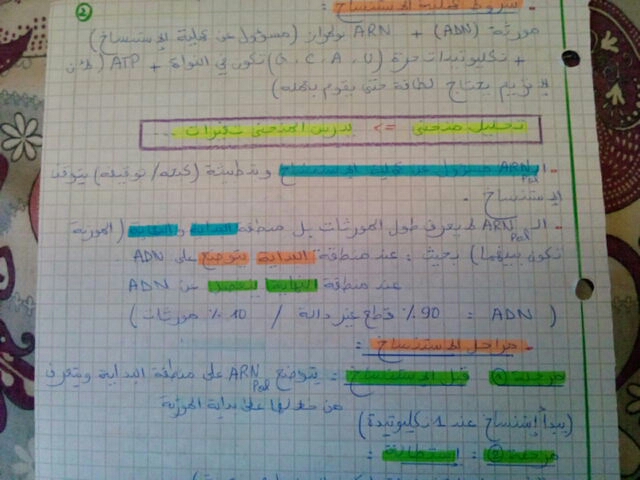 ②
شروط عملية الاستنساخ :
مورثة (ADN) + ARN بوليمراز (مسؤول عن عملية الاستنساخ)
+ نكليوتيدات حرة (G, C, A, U) تكون في النواة + ATP (لأن
الإنزيم يحتاج لطاقة حتى يقوم بعمله)
تحليل منحنى => يدرس المنحنى تغيرات ...
- ARN Pol مسؤول عن عملية الاستنساخ وتثبيطه (كبحه / توقيفه) يتوقف
الاستنساخ .
- الـ ARN Pol لا يعرف طول المورثات بل منطقة البداية والنهاية (المورثة
تكون بينهما) بحيث : عند منطقة البداية يتوضع على ADN
عند منطقة النهاية ينفصل عن ADN
( ADN : 90% قطع غير دالة / 10% مورثات )
- مراحل الاستنساخ :
مرحلة ① قبل الاستنساخ : يتوضع ARN Pol على منطقة البداية ويتعرف
من خلالها على بداية المورثة
(يبدأ إستنساخ عند 1 نكليوتيدة)
مرحلة ② : إستطالة :